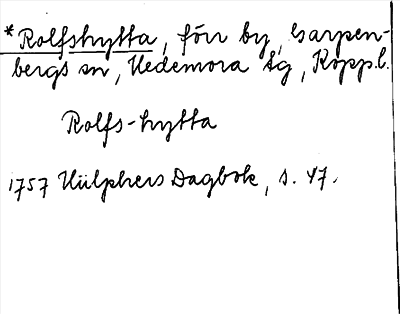 *Rolfshytta, förr by, Garpen-
bergs sn, Hedemora tg, Kopp.l.
Rolfs-hytta
1757 Hülphers Dagbok, s. 47.